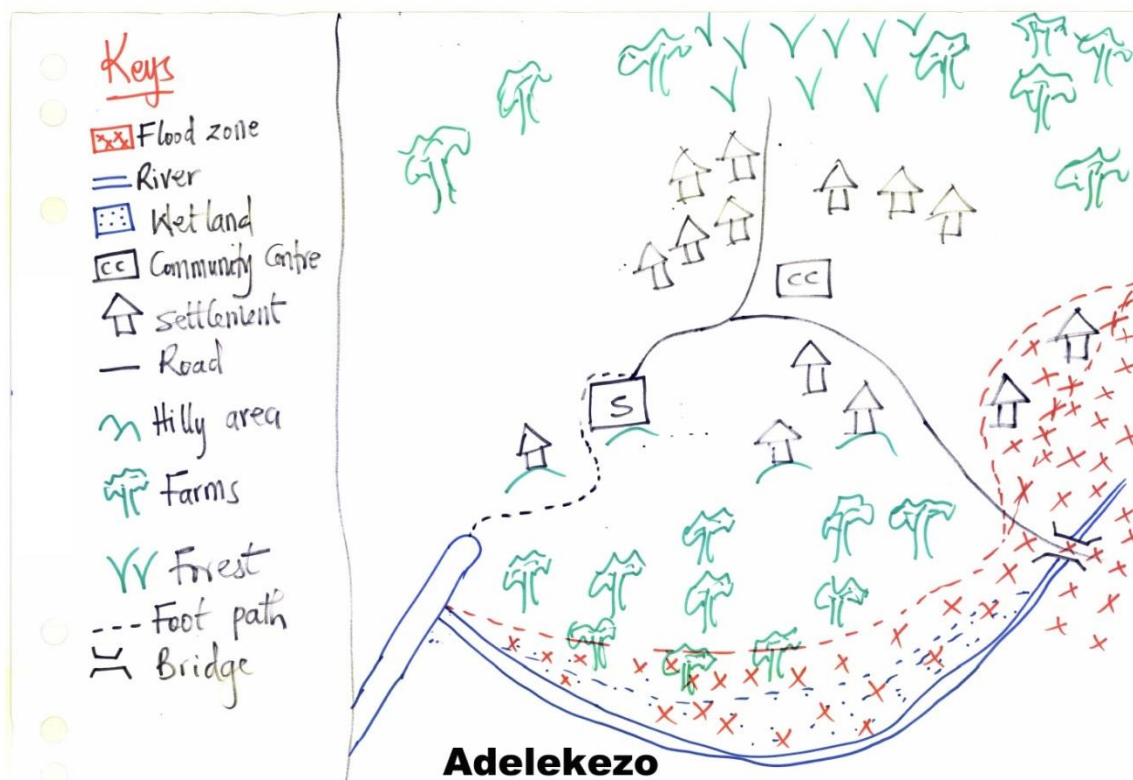 Keys
Flood zone
River
Wetland
CC Community Centre
Settlement
Road
Hilly area
Farms
Forest
Foot path
Bridge
CC
S
Adelekezo